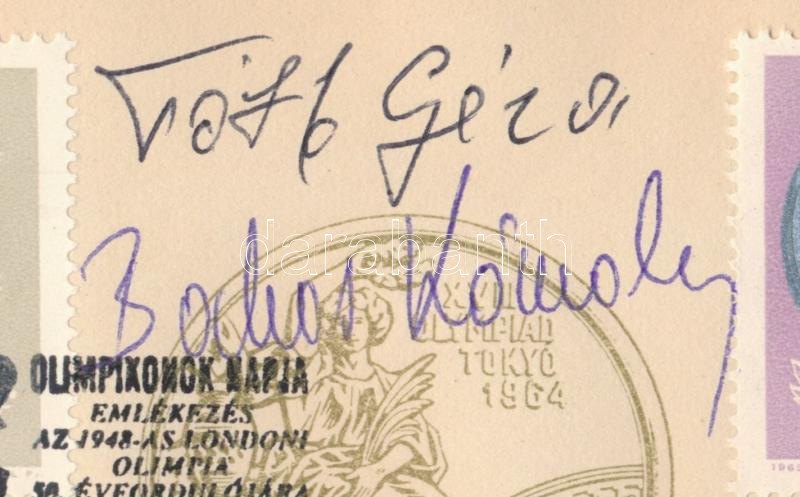 Tóth Géza
Bakos Károly
darabanth
XVIII
OLYMPIAD
TOKYO
1964
OLIMPIKONOK NAPJA
EMLÉKEZÉS
AZ 1948-AS LONDONI
OLIMPIA
50. ÉVFORDULÓJÁRA
1965